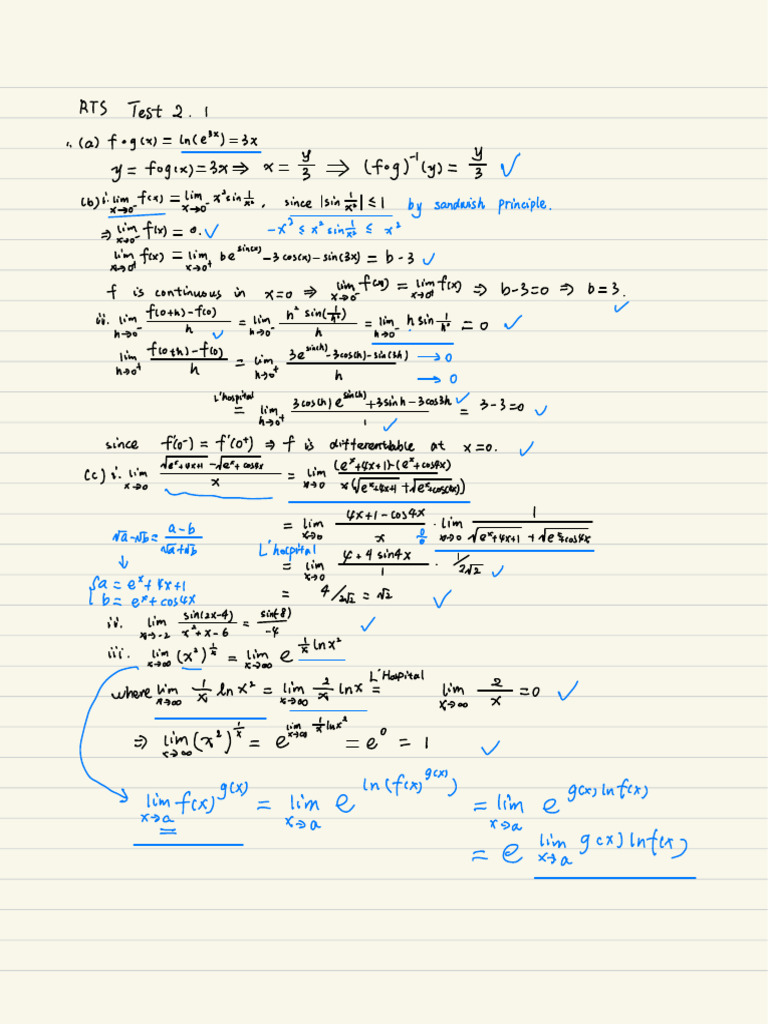 RTS Test 2. 1
1. (a) f∘g(x) = ln(e^{3x}) = 3x
y = fog(x) = 3x ⇒ x = y/3 ⇒ (f∘g)^{-1}(y) = y/3 ✓
(b) i. lim_{x→0^-} f(x) = lim_{x→0^-} x² sin 1/x², since |sin 1/x²| ≤ 1 by sandwish principle.
⇒ lim_{x→0^-} f(x) = 0. ✓ -x² ≤ x² sin 1/x² ≤ x²
lim_{x→0^+} f(x) = lim_{x→0^+} be^{sin(x)} - 3cos(x) - sin(3x) = b - 3 ✓
f is continuous in x=0 ⇒ lim_{x→0^-} f(x) = lim_{x→0^+} f(x) ⇒ b-3=0 ⇒ b=3. ✓
ii. lim_{h→0^-} (f(0+h) - f(0))/h = lim_{h→0^-} (h² sin(1/h²))/h = lim_{h→0^-} h sin 1/h² = 0 ✓
✓
lim_{h→0^+} (f(0+h) - f(0))/h = lim_{h→0^+} (3e^{sin(h)} - 3cos(h) - sin(3h))/h → 0 → 0
L'hospital = lim_{h→0^+} (3cos(h)e^{sin(h)} + 3sinh - 3cos3h)/1 ✓ = 3-3=0 ✓
✓
since f'(0^-) = f'(0^+) ⇒ f is differentiable at x=0. ✓
(c) i. lim_{x→0} (√(e^x+4x+1) - √(e^x+cos4x))/x = lim_{x→0} ((e^x+4x+1)-(e^x+cos4x))/(x(√(e^x+4x+1) + √(e^x+cos(4x))))
= lim_{x→0} (4x+1-cos4x)/x 0/0 · lim_{x→0} 1/(√(e^x+4x+1) + √(e^x+cos4x))
√a-√b = (a-b)/(√a+√b)
↓
L'hospital = lim_{x→0} (4+4sin4x)/1 · 1/2√2 ✓
{ a = e^x+4x+1
b = e^x+cos4x
= 4/2√2 = √2 ✓
ii. lim_{x→-2} sin(2x-4)/(x²+x-6) = sin(-8)/-4 ✓
iii. lim_{x→∞} (x²)^{1/x} = lim_{x→∞} e^{1/x ln x²}
where lim_{x→∞} 1/x ln x² = lim_{x→∞} 2/x ln x L'Hospital = lim_{x→∞} 2/x = 0 ✓
⇒ lim_{x→∞} (x²)^{1/x} = e^{lim_{x→∞} 1/x ln x²} = e^0 = 1 ✓
lim_{x→a} f(x)^{g(x)} = lim_{x→a} e^{ln(f(x)^{g(x)})} = lim_{x→a} e^{g(x) ln f(x)}
= e^{lim_{x→a} g(x) ln f(x)}